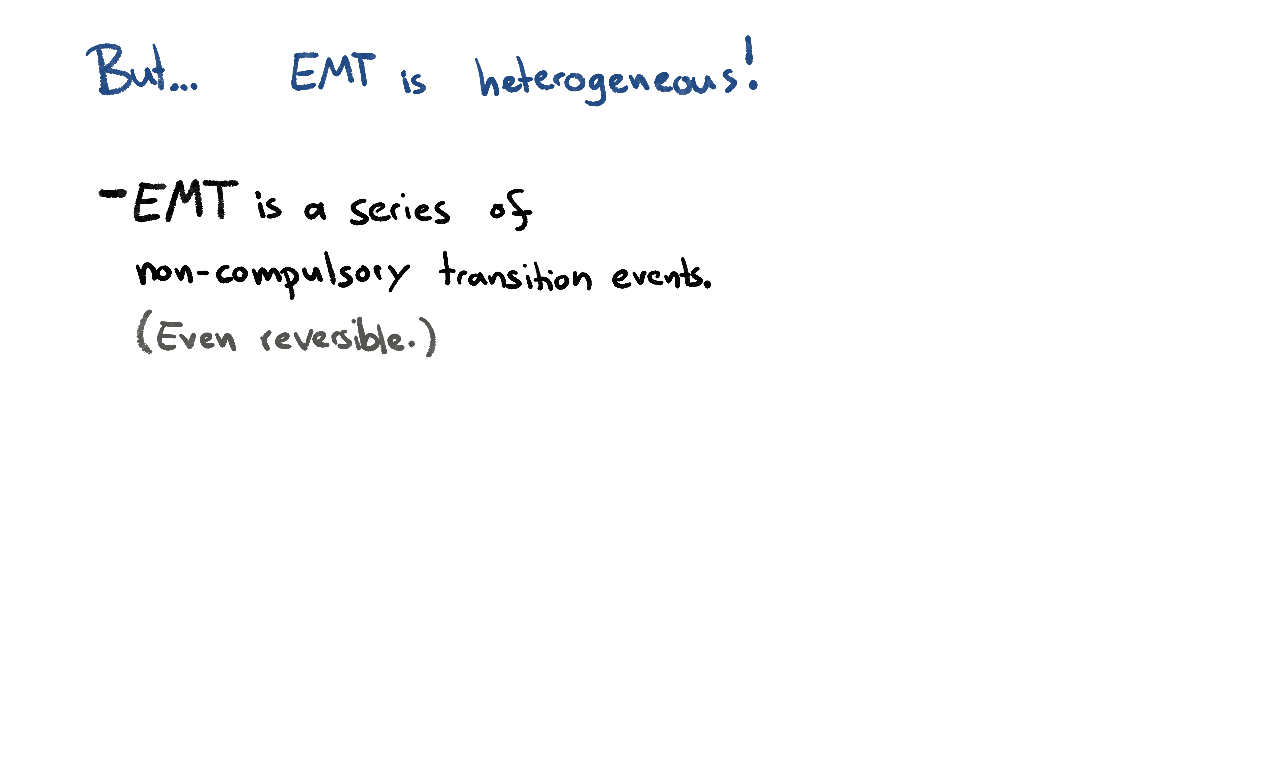 But... EMT is heterogeneous!
- EMT is a series of
non-compulsory transition events.
(Even reversible.)